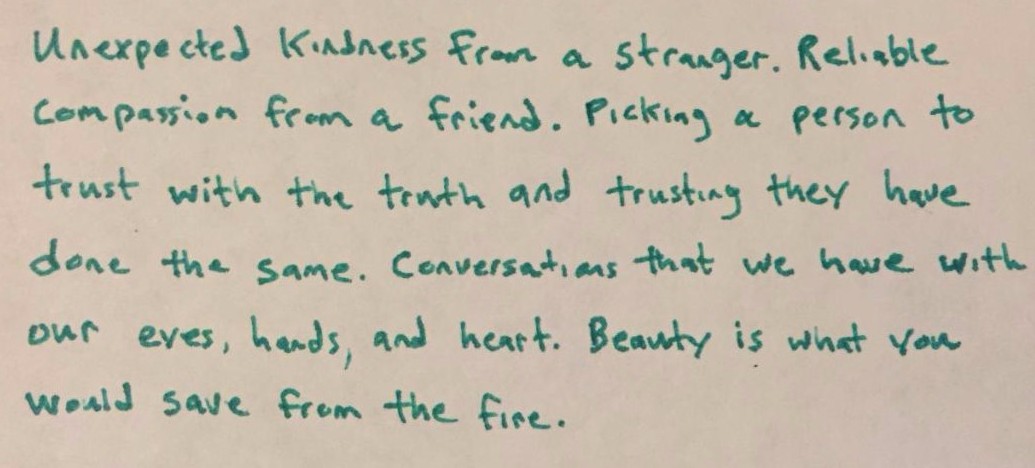 Unexpected Kindness from a stranger. Reliable
Compassion from a friend. Picking a person to
trust with the truth and trusting they have
done the same. Conversations that we have with
our eyes, hands, and heart. Beauty is what you
would save from the fire.